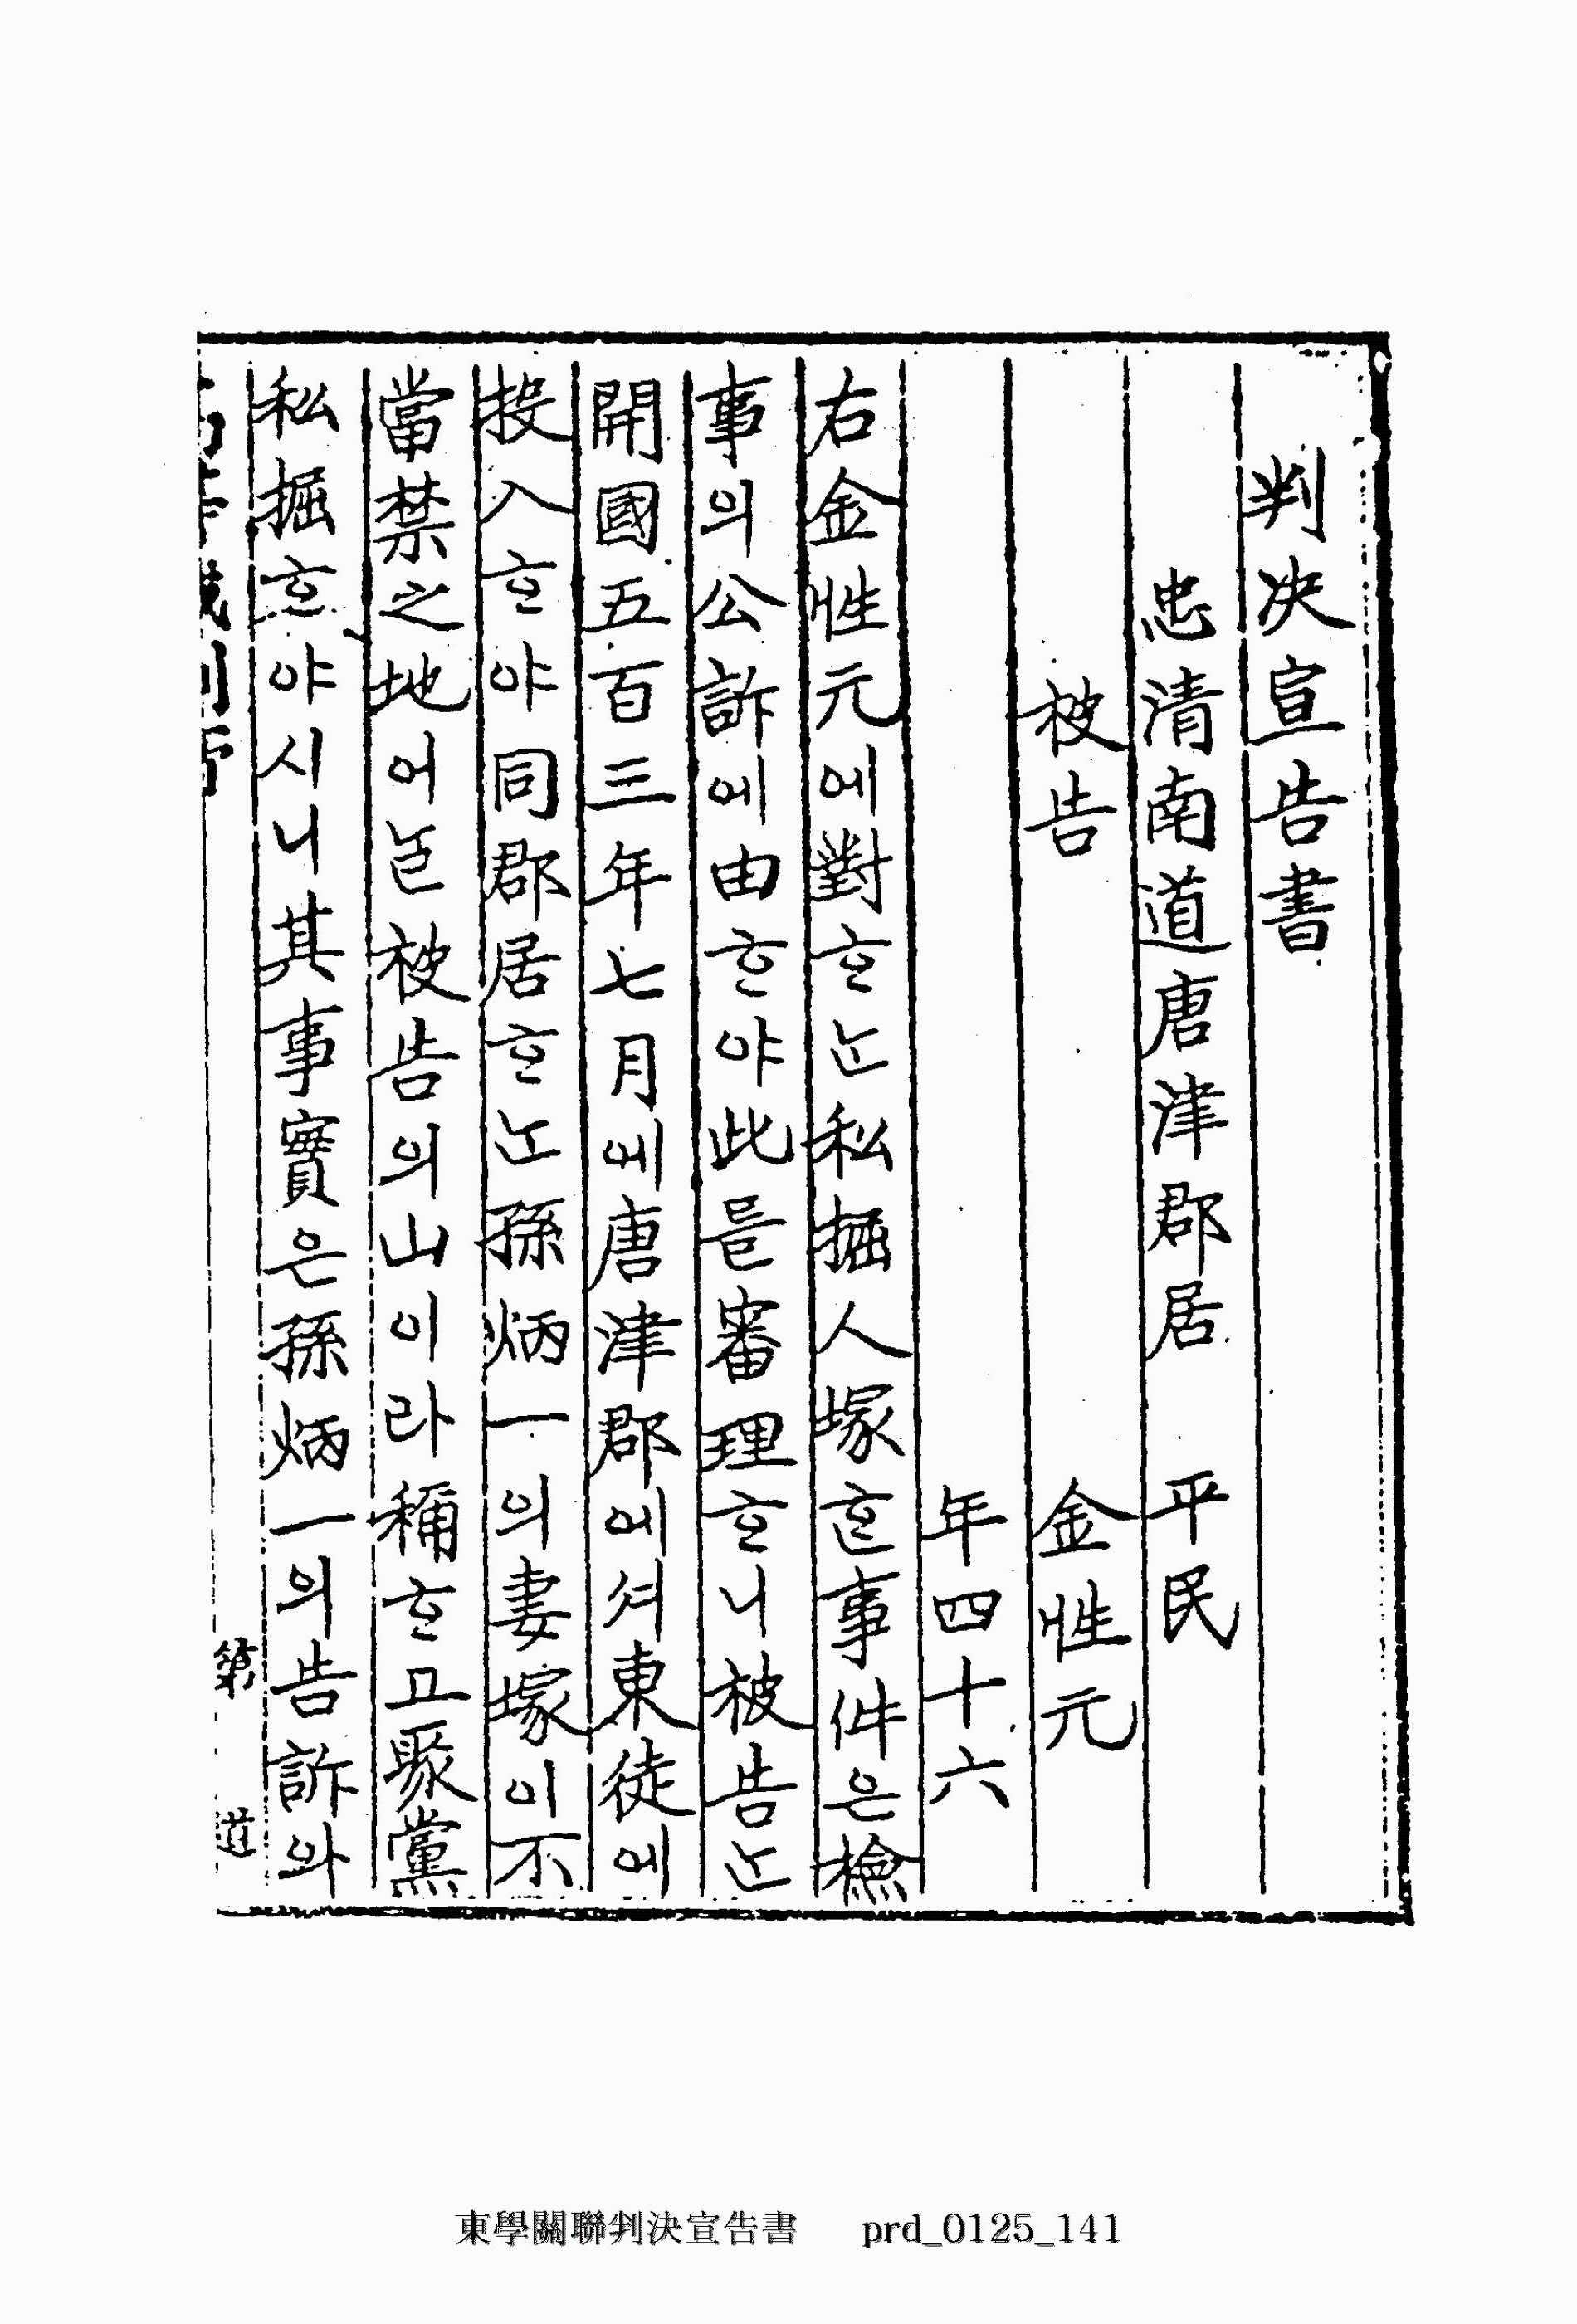 判決宣告書
忠清南道唐津郡居 平民
被告 金性元
年四十六
右金性元에對ᄒᆞᄂᆞᆫ私掘人塚ᄒᆞᆫ事件은檢
事의公訴에由ᄒᆞ야此ᄅᆞᆯ審理ᄒᆞ니被告ᄂᆞᆫ
開國五百三年七月에唐津郡에셔東徒에
投入ᄒᆞ야同郡居ᄒᆞᄂᆞᆫ孫炳一의妻塚이不
當禁之地어ᄂᆞᆯ被告의山이라稱ᄒᆞ고聚黨
私掘ᄒᆞ야시니其事實은孫炳一의告訴와
第 道
東學關聯判決宣告書 prd_0125_141